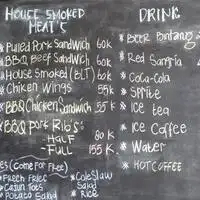 HOUSE SMOKED
MEAT'S
*Pulled Pork Sandwich 60k
*BBQ Beef Sandwich 60k
*House Smoked (BLT) 60k
*Chiken Wings 55k
*BBQ Chicken Sandwich 55k
*BBQ Pork Rib's:
-HALF 80k
-FULL 155k
(Come For Free)
*French Fries
*Cajun Tots
*Potato Salad
*Coleslaw
Salad
*Rice
DRINK
*BEER Bintang
*Red Sangria
*Coca-Cola
*Sprite
*Ice tea
*Ice Coffee
*Water
*HOT COFFEE